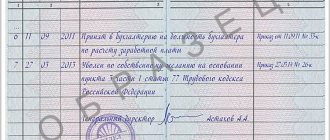 6 11 09 2011 Принят в бухгалтерию на должность бухгалтера Приказ от 11.09.11 № 33-к
по расчету заработной платы
7 27 03 2013 Уволен по собственному желанию на основании Приказ от 27.03.13 № 26-к
пункта 3 часть 1 статьи 77 Трудового кодекса
Российской Федерации
Генеральный директор Астахов А.А.
ОБРАЗЕЦ